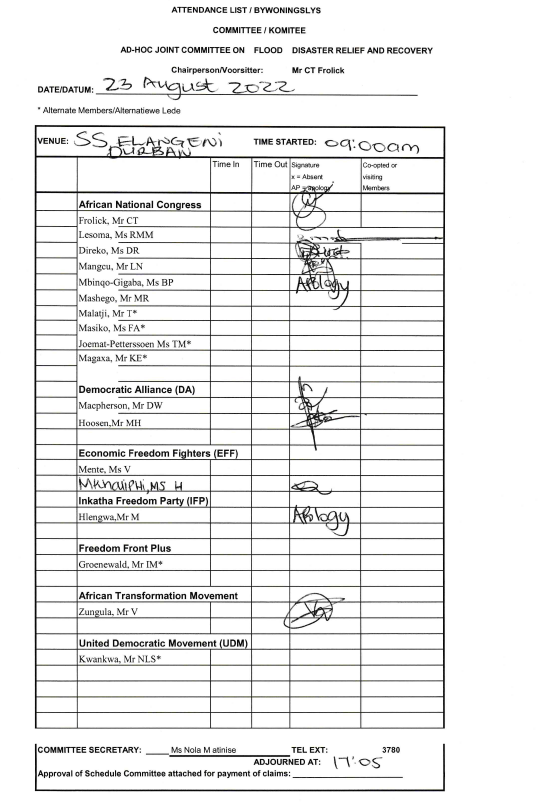 ATTENDANCE LIST / BYWONINGSLYS
COMMITTEE / KOMITEE
AD-HOC JOINT COMMITTEE ON FLOOD DISASTER RELIEF AND RECOVERY
Chairperson/Voorsitter: Mr CT Frolick
DATE/DATUM: 23 August 2022
* Alternate Members/Alternatiewe Lede
VENUE: SS ELANGENI DURBAN TIME STARTED: 09:00am
Time In Time Out Signature Co-opted or
x = Absent visiting
AP = apology Members
African National Congress
Frolick, Mr CT
Lesoma, Ms RMM
Direko, Ms DR
Mangcu, Mr LN
Mbinqo-Gigaba, Ms BP Apology
Mashego, Mr MR
Malatji, Mr T*
Masiko, Ms FA*
Joemat-Petterssoen Ms TM*
Magaxa, Mr KE*
Democratic Alliance (DA)
Macpherson, Mr DW
Hoosen,Mr MH
Economic Freedom Fighters (EFF)
Mente, Ms V
Mkhaliphi, MS H
Inkatha Freedom Party (IFP)
Hlengwa,Mr M Apology
Freedom Front Plus
Groenewald, Mr IM*
African Transformation Movement
Zungula, Mr V
United Democratic Movement (UDM)
Kwankwa, Mr NLS*
COMMITTEE SECRETARY: Ms Nola M atinise TEL EXT: 3780
ADJOURNED AT: 17:05
Approval of Schedule Committee attached for payment of claims: